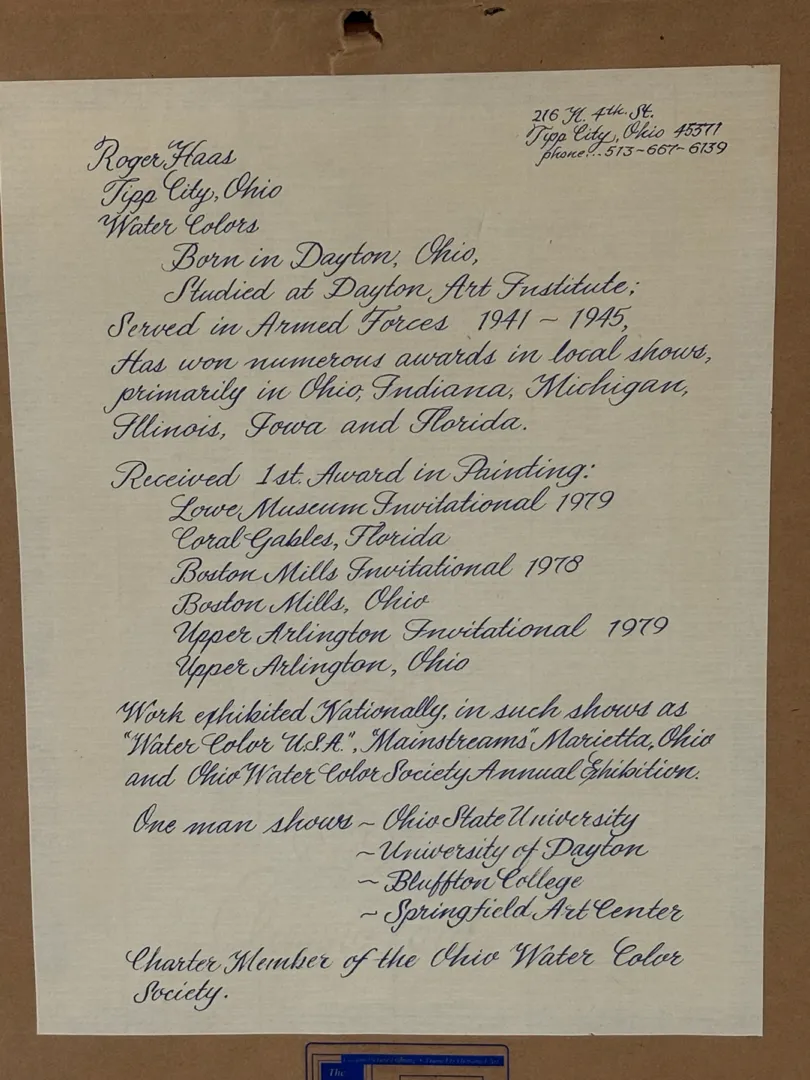 216 N. 4th. St.
Tipp City, Ohio 45371
phone...513-667-6139
Roger Haas
Tipp City, Ohio
Water Colors
Born in Dayton, Ohio,
Studied at Dayton Art Institute;
Served in Armed Forces 1941 ~ 1945,
Has won numerous awards in local shows,
primarily in Ohio, Indiana, Michigan,
Illinois, Iowa and Florida.
Received 1st. Award in Painting:
Lowe Museum Invitational 1979
Coral Gables, Florida
Boston Mills Invitational 1978
Boston Mills, Ohio
Upper Arlington Invitational 1979
Upper Arlington, Ohio
Work exhibited Nationally, in such shows as
"Water Color U.S.A.", Mainstreams" Marietta, Ohio
and Ohio Water Color Society Annual Exhibition.
One man shows ~ Ohio State University
~ University of Dayton
~ Bluffton College
~ Springfield Art Center
Charter Member of the Ohio Water Color
Society.
The